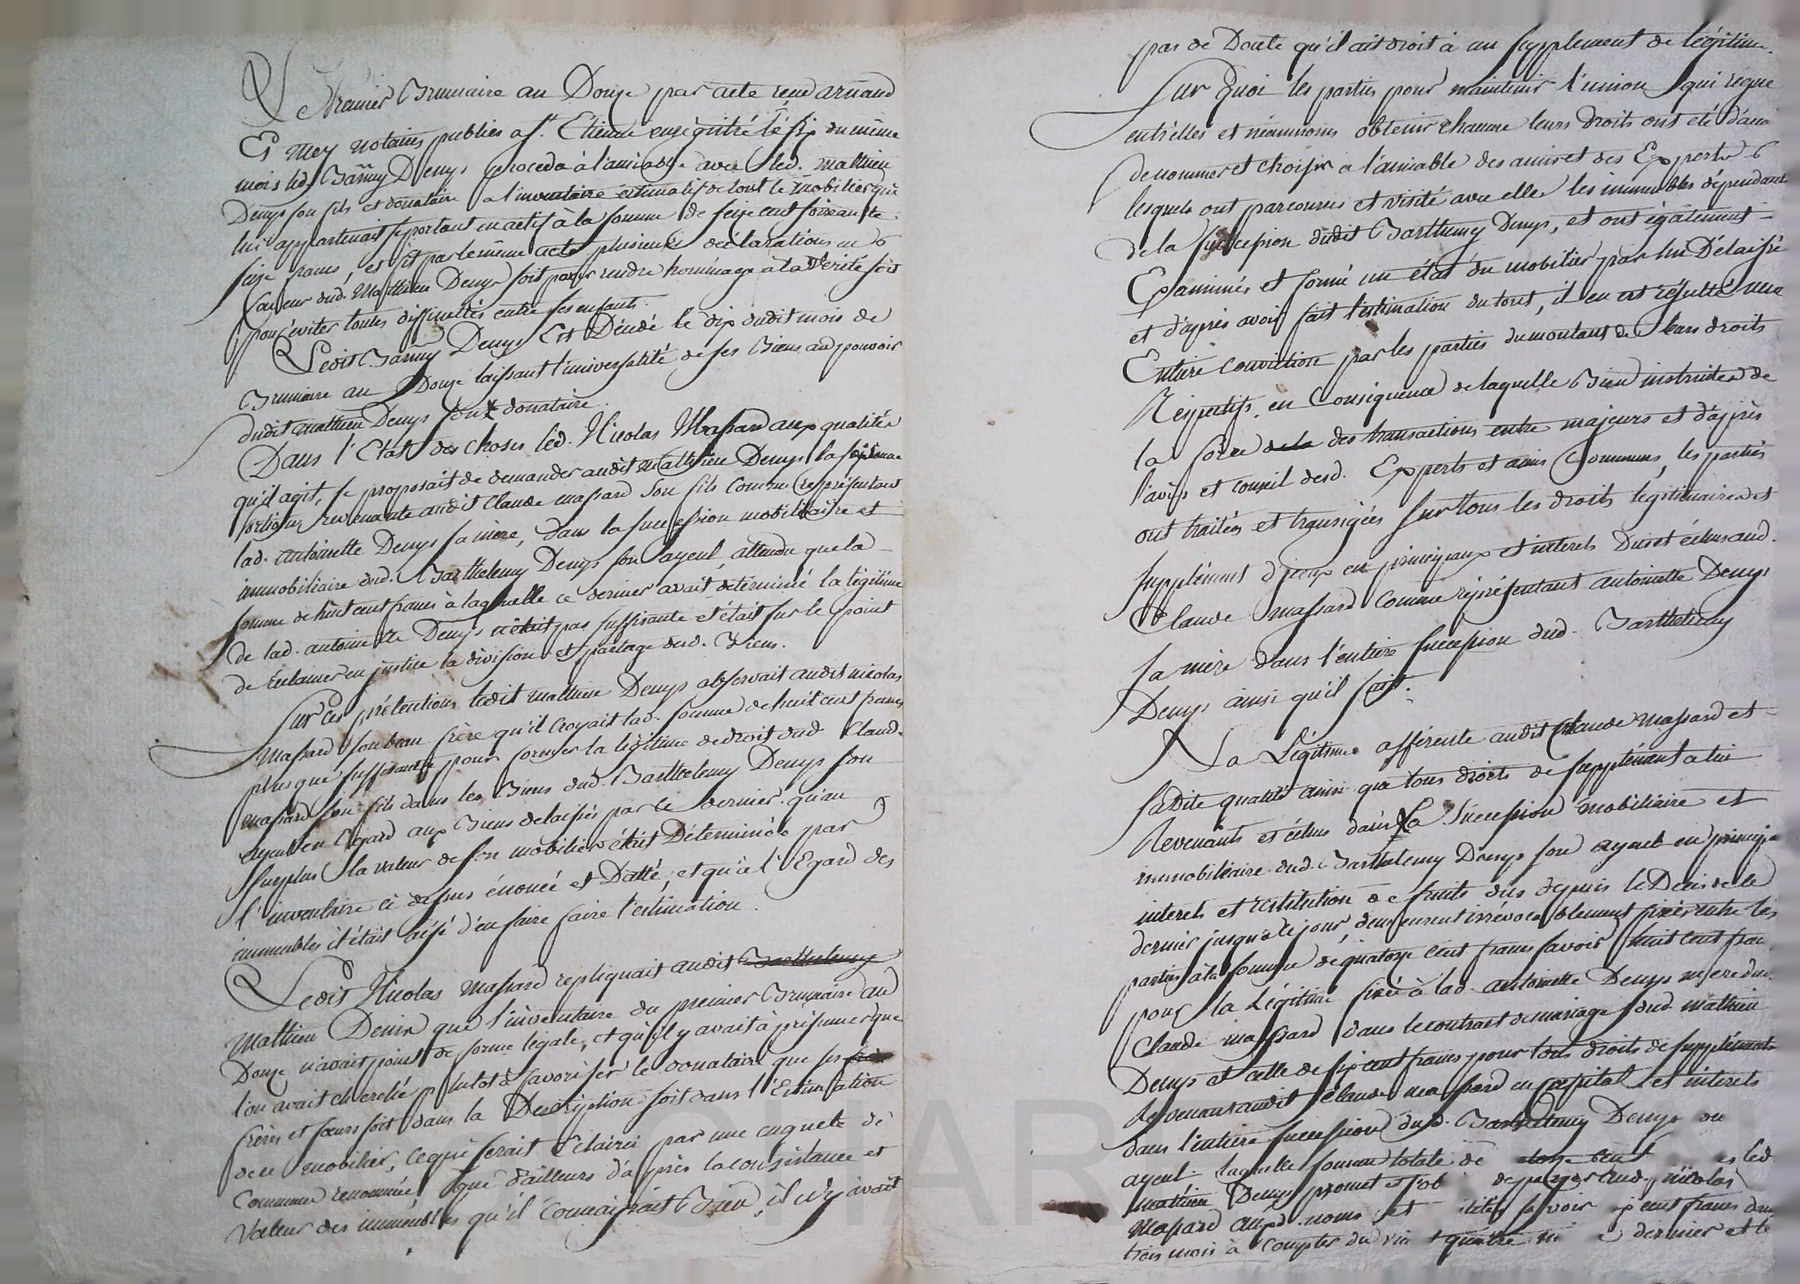 Le Premier Brumaire an Douze par acte reçu arnaud
Et mey notaires publics a St. Etienne enregistré le six du même
mois led. Barmy Denys proceda à l'amiable avec led. mathieu
Denys son fils et donataire a l'inventaire estimatif de tout le mobilier qui
lui appartenait se portant en actif à la somme de seize cent soixante
seize francs, et fit par le même acte plusieurs declarations en
faveur dud. Mathieu Denys soit pour rendre hommage a la verité soit
pour éviter toutes difficultés entre ses enfants.
Ledit Barmy Denys Est Décédé le dix dudit mois de
Brumaire an Douze laissant l'universalité de ses Biens au pouvoir
dudit mathieu Denys son donataire.
Dans l'Etat des choses led. Nicolas Massard aux qualités
qu'il agit, se proposait de demander audit mathieu Denys la
portion revenante audit Claude massard son fils comme représentant
lad. antoinette Denys sa mère, dans la succession mobiliaire et
immobiliaire dud. Barthelemy Denys son ayeul, attendu que la
somme de huit cent francs à laquelle ce dernier avait determiné la légitime
de lad. antoinette Denys n'était pas suffisante et était sur le point
de réclamer en justice la division et partage desd. Biens.
Sur ces prétentions ledit mathieu Denys observait audit nicolas
Massard son beau frère qu'il croyait lad. somme de huit cent francs
plus que suffisante pour former la légitime de droit dud. Claude
massard son fils dans les Biens dud. Barthelemy Denys son
ayeul en Egard aux Biens delaissés par ce dernier qu'au
surplus la valeur de son mobilier était Déterminée par
l'inventaire ci dessus énoncé et Datté, et qu'à l'Egard des
immeubles il était aisé d'en faire faire l'estimation.
Ledit Nicolas Massard repliquait audit Barthelemy
Mathieu Denis que l'inventaire du premier Brumaire an
Douze n'avait point de forme legale, et qu'il y avait à présumer que
l'on avait cherché plutot à favoriser le donataire que ses
frères et sœurs soit dans la Description soit dans l'Estimation
de ce mobilier, ce qui serait Eclairci par une enquete de
Commune renommée, que d'ailleurs d'après la consistance et
Valeur des immeubles qu'il Connaissait Bien, il n'y avait
pas de Doute qu'il eut droit à un supplement de légitime.
Sur Quoi les parties pour maintenir l'union qui regne
entr'elles et néanmoins obtenir chacune leurs droits ont été d'avis
de nommer et choisir a l'amiable des amis et des Experts
lesquels ont parcourus et visité avec elles les immeubles dépendants
de la succession dudit Barthemy Denys, et ont également
Examinés et formé un état du mobilier par lui Délaissé
et d'après avoir fait l'estimation du tout, il en est résulté une
Entière conviction par les parties du montant de leurs droits
Respectifs. en Consequence de laquelle Bien instruites de
la force de la des transactions entre majeurs et d'après
l'avis et conseil desd. Experts et amis Communs, les parties
ont traités et transigées sur tous les droits legitimaires et
supplément d'iceux en principaux et interets Dus et échus aud.
Claude massard comme représentant antoinette Denys
sa mère dans l'entière succession dud. Barthelemy
Denys ainsi qu'il suit.
La Légitime afférente audit Claude Massard et
sadite qualité ainsi que tous droits de supplément a lui
Revenants et échus dans La Succession mobiliaire et
immobiliaire dud. Barthelemy Denys son ayeul en principal
interets et restitution de fruits dus depuis le Deces de ce
dernier jusqu'à ce jour, demeurent irrévocablement fixés entre les
parties à la somme de quatorze cent francs savoir huit cent francs
pour la Légitime fixée à lad. antoinette Denys mere dud.
Claude massard dans le contrat de mariage dud. mathieu
Denys et celle de six cent francs pour tous droits de suppléments
Revenants audit Claude massard en capital et interets
dans l'entière succession dud. Barthelemy Denys son
ayeul. laquelle somme totale de led.
mathieu Denys promet et de payer aud. nicolas
Massard auxd. noms et savoir cent francs dans
trois mois à compter du quatre dernier et le